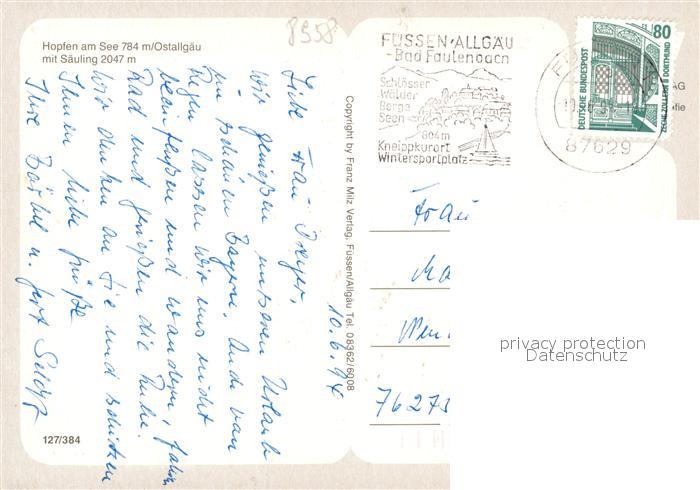 8958
Hopfen am See 784 m/Ostallgäu
mit Säuling 2047 m
10.6.94
Liebe Frau
wir genießen unseren Urlaub
im schönen Bayern. Auch von
Regen lassen wir uns nicht
beeinflußen und wandern, fahren
Rad und genießen die Ruhe.
Wir denken an Sie und schicken
Ihnen liebe Grüße
Ihre Bärbel u. Gert
127/384
Copyright by Franz Milz Verlag, Füssen/Allgäu Tel. 08362/6008
FÜSSEN-ALLGÄU
-Bad Faulenbach
Schlösser
Wälder
Berge
Seen
804m
Kneippkurort
Wintersportplatz
87629
80
DEUTSCHE BUNDESPOST
ZECHE ZOLLERN II DORTMUND
AG
fie
Frau
76275
privacy protection
Datenschutz